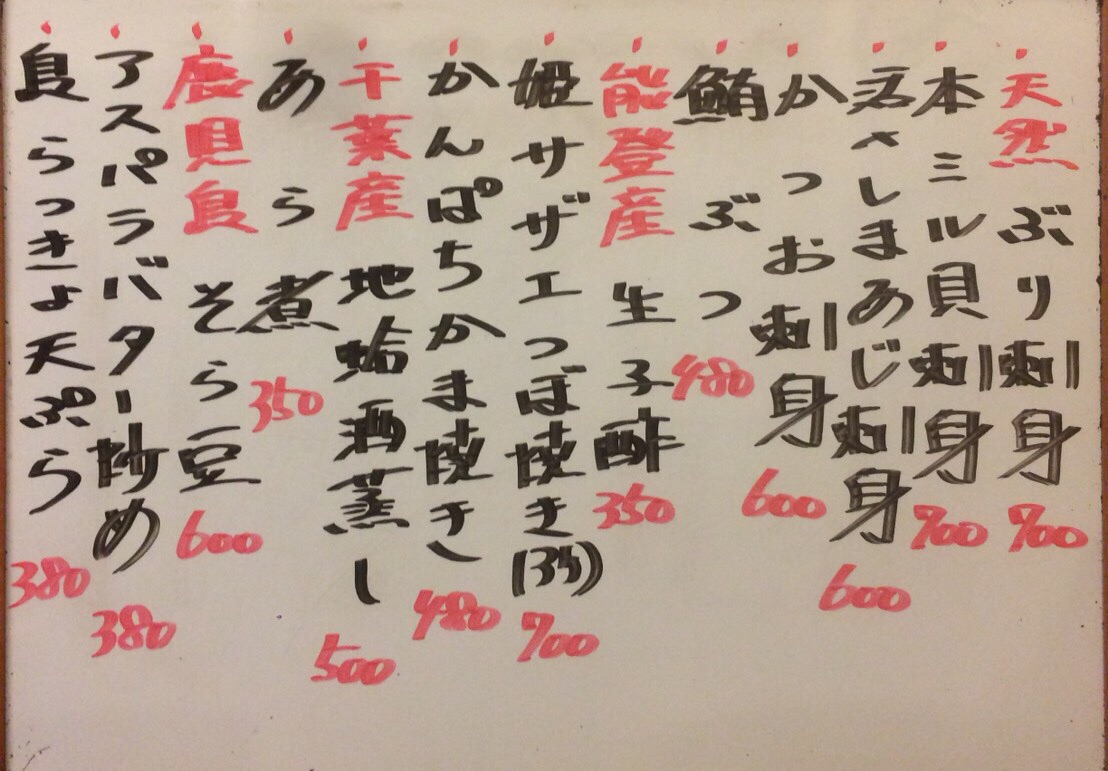 天然 ぶり刺身 700
本ミル貝刺身 700
しまあじ刺身 600
かつお刺身 600
鮪ぶつ 480
能登産 生子酢 350
姫サザエつぼ焼き(3ヶ) 700
かんぱちかま焼き 480
千葉産 地蛤酒蒸し 500
あら煮 350
鹿児島 そら豆 600
アスパラバター炒め 380
島らっきょ天ぷら 380